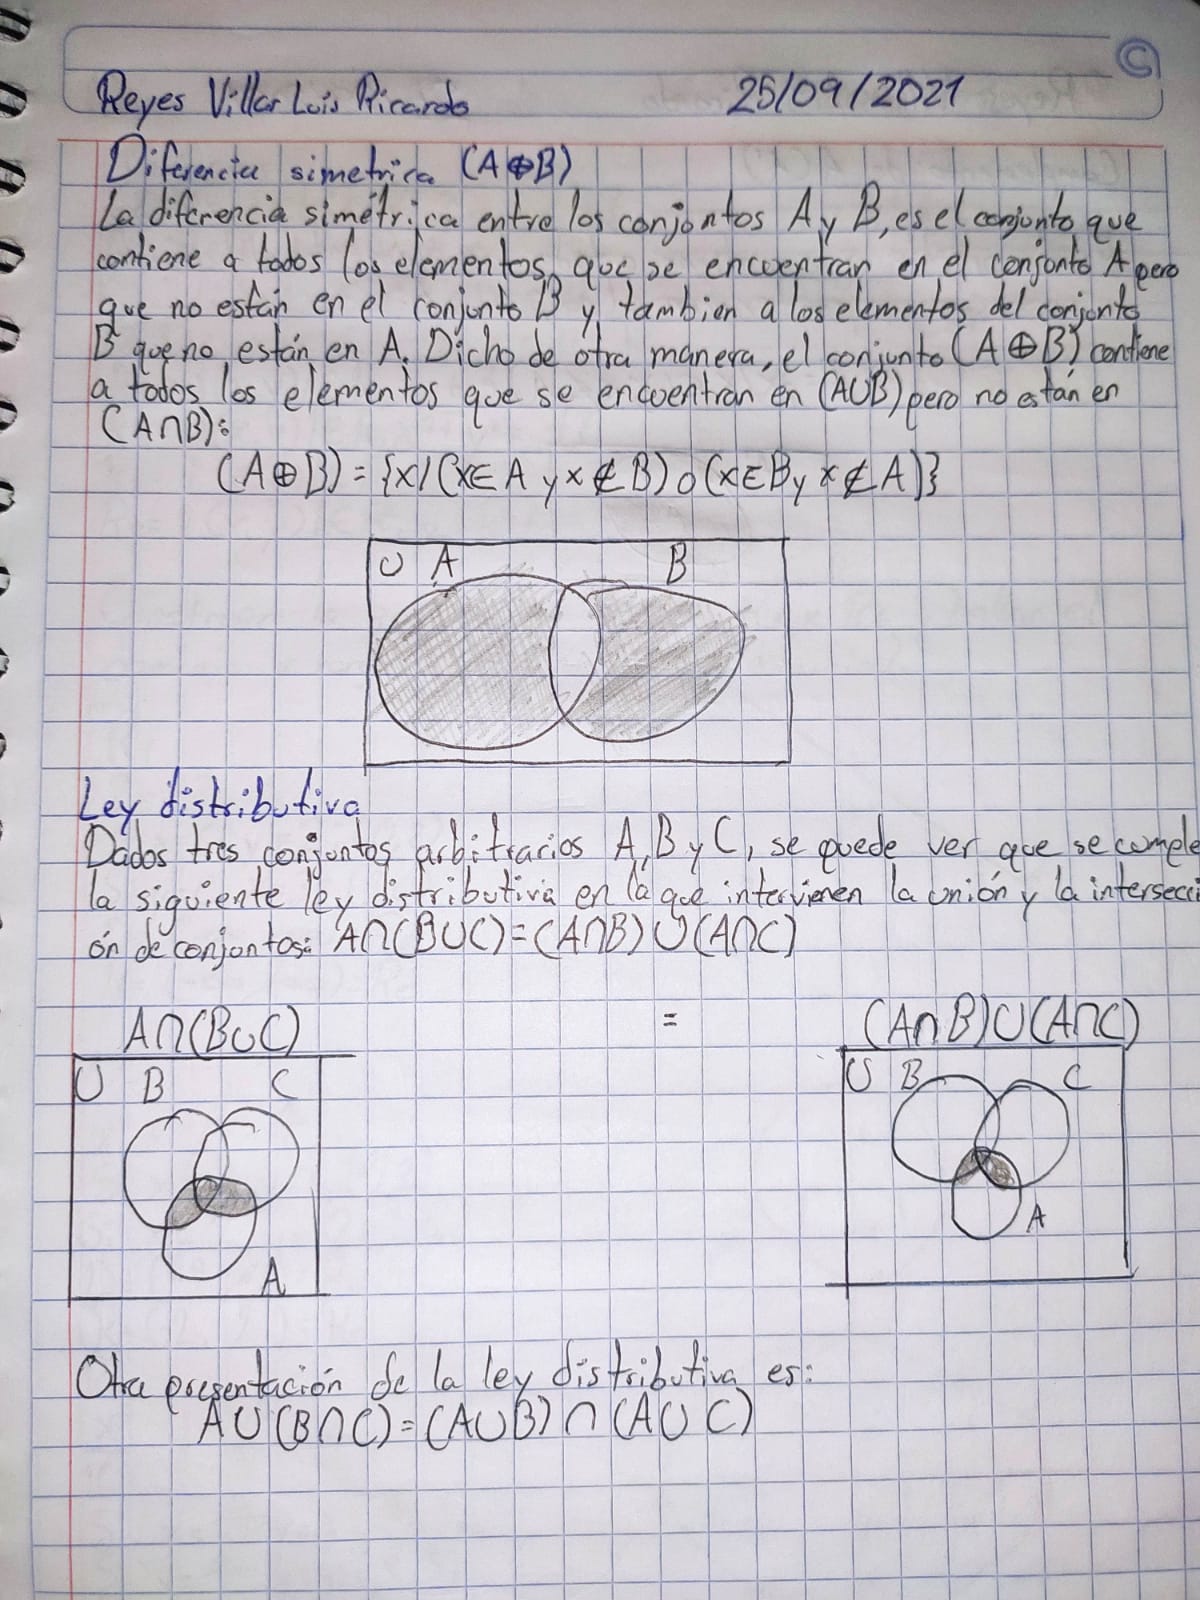 ©
Reyes Villar Luis Ricardo 25/09/2021
Diferencia simetrica (A⊕B)
La diferencia simétrica entre los conjuntos A y B, es el conjunto que
contiene a todos los elementos que se encuentran en el conjunto A pero
que no están en el conjunto B y tambien a los elementos del conjunto
B que no están en A. Dicho de otra manera, el conjunto (A⊕B) contiene
a todos los elementos que se encuentran en (A∪B) pero no están en
(A∩B):
(A⊕B) = {x/(x∈A y x∉B) o (x∈B y x∉A)}
U A B
Ley distributiva
Dados tres conjuntos arbitrarios A, B y C, se puede ver que se cumple
la siguiente ley distributiva en la que intervienen la unión y la intersecci
ón de conjuntos: A∩(B∪C)=(A∩B)∪(A∩C)
A∩(B∪C) = (A∩B)∪(A∩C)
U B C U B C
A A
Otra presentación de la ley distributiva es:
A∪(B∩C)=(A∪B)∩(A∪C)